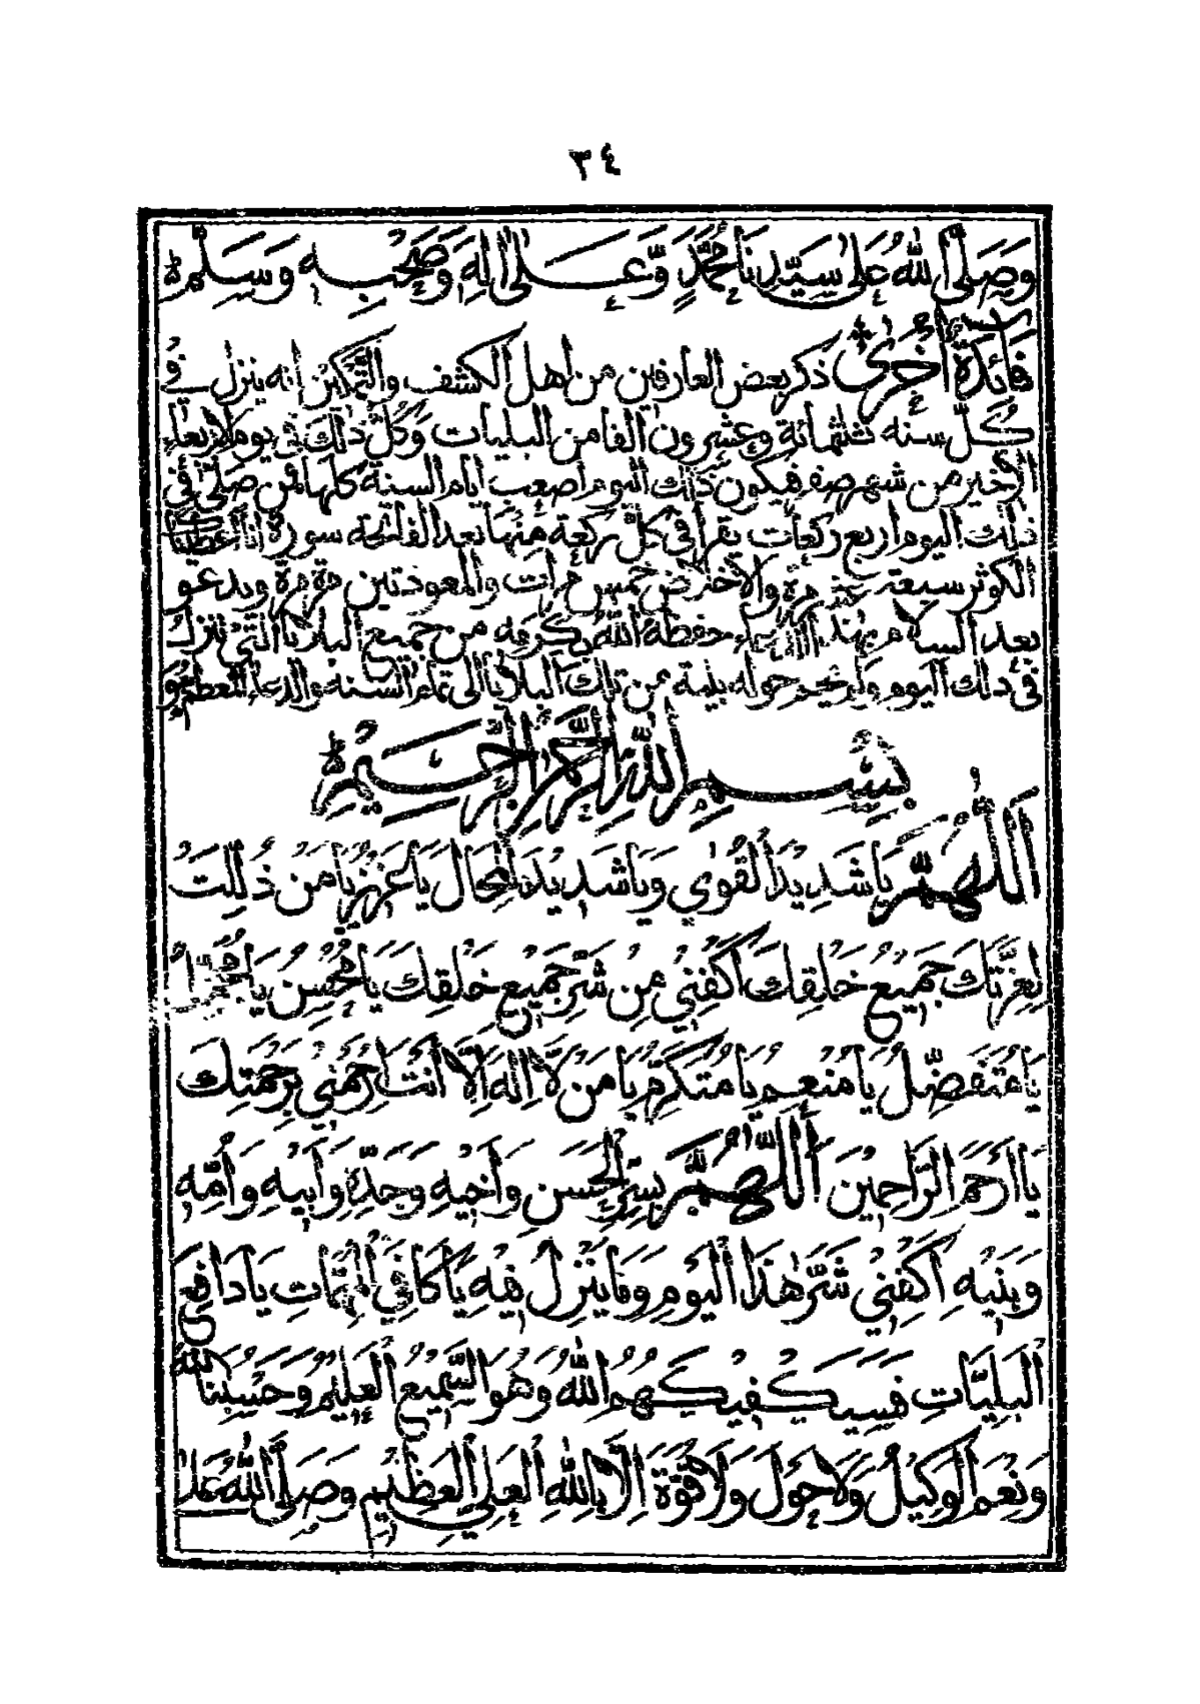 ٣٤
وَصَلَّى اللهُ عَلَى سَيِّدِنَا مُحَمَّدٍ وَّعَلَى اٰلِهٖ وَصَحْبِهٖ وَسَلَّمَ
فَائِدَةٌ اُخْرٰى ذكر بعض العارفين من اهل الكشف والتمكين انه ينزل في
كل سنه ثلثمائة وعشرون الفا من البليات وكل ذلك في يوم الاربعاء
الاخير من شهر صفر فيكون ذلك اليوم اصعب ايام السنة كلها فمن صلى في
ذلك اليوم اربع ركعات يقرأ في كل ركعة منها بعد الفاتحة سورة انا اعطينك
الكوثر سبعة عشر مرة والاخلاص خمس مرات والمعوذتين مرة مرة ويدعو
بعد السلام بهذا الدعاء حفظه الله بكرمه من جميع البلايا التي تنزل
في ذلك اليوم ولم يحم حوله بلية من تلك البلايا الى تمام السنة والدعاء المعظم هو
بِسْمِ اللهِ الرَّحْمٰنِ الرَّحِيْمِ
اَللّٰهُمَّ يَا شَدِيْدَ الْقُوٰى وَيَا شَدِيْدَ الْمِحَالِ يَا عَزِيْزُ يَا مَنْ ذَلَّتْ
لِعِزَّتِكَ جَمِيْعُ خَلْقِكَ اَكْفِنِيْ مِنْ شَرِّ جَمِيْعِ خَلْقِكَ يَا مُحْسِنُ يَا مُجَمِّلُ
يَا مُتَفَضِّلُ يَا مُنْعِمُ يَا مُتَكَرِّمُ يَا مَنْ لَّا اِلٰهَ اِلَّا اَنْتَ اِرْحَمْنِيْ بِرَحْمَتِكَ
يَا اَرْحَمَ الرَّاحِمِيْنَ اَللّٰهُمَّ بِسِرِّ الْحَسَنِ وَاَخِيْهِ وَجَدِّهٖ وَاَبِيْهِ وَاُمِّهٖ
وَبَنِيْهِ اَكْفِنِيْ شَرَّ هٰذَا الْيَوْمِ وَمَا يَنْزِلُ فِيْهِ يَا كَافِيَ الْمُهِمَّاتِ يَا دَافِعَ
الْبَلِيَّاتِ فَسَيَكْفِيْكَهُمُ اللهُ وَهُوَ السَّمِيْعُ الْعَلِيْمُ وَحَسْبُنَا اللهُ
وَنِعْمَ الْوَكِيْلُ وَلَا حَوْلَ وَلَا قُوَّةَ اِلَّا بِاللهِ الْعَلِيِّ الْعَظِيْمِ وَصَلَّى اللهُ عَلٰى